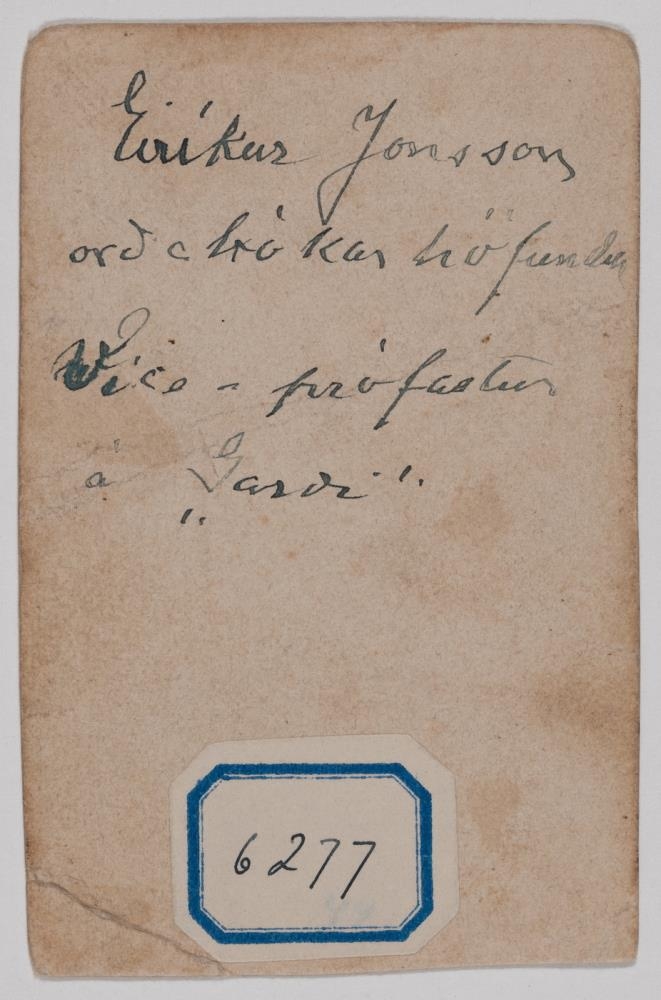 Eiríkur Jonsson
orðabókar höfundur
Vice-prófastur
á „Garði“.
6277